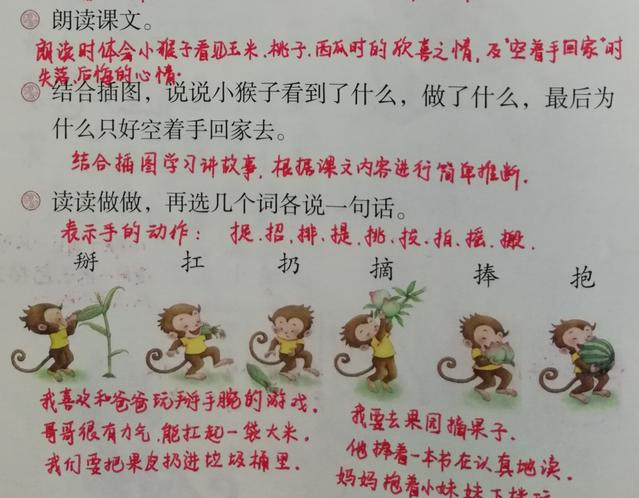 朗读课文。
朗读时体会小猴子看见玉米、桃子、西瓜时的欢喜之情,及"空着手回家"时
失落、后悔的心情。
结合插图,说说小猴子看到了什么,做了什么,最后为
什么只好空着手回家去。
结合插图学习讲故事,根据课文内容进行简单推断。
读读做做,再选几个词各说一句话。
表示手的动作:捉、招、排、提、挑、拔、拍、摇、搬、
掰 扛 扔 摘 捧 抱
我喜欢和爸爸玩掰手腕的游戏。
哥哥很有力气,能扛起一袋大米。
我们要把果皮扔进垃圾桶里。
我要去果园摘果子。
他捧着一本书在认真地读。
妈妈抱着小妹妹